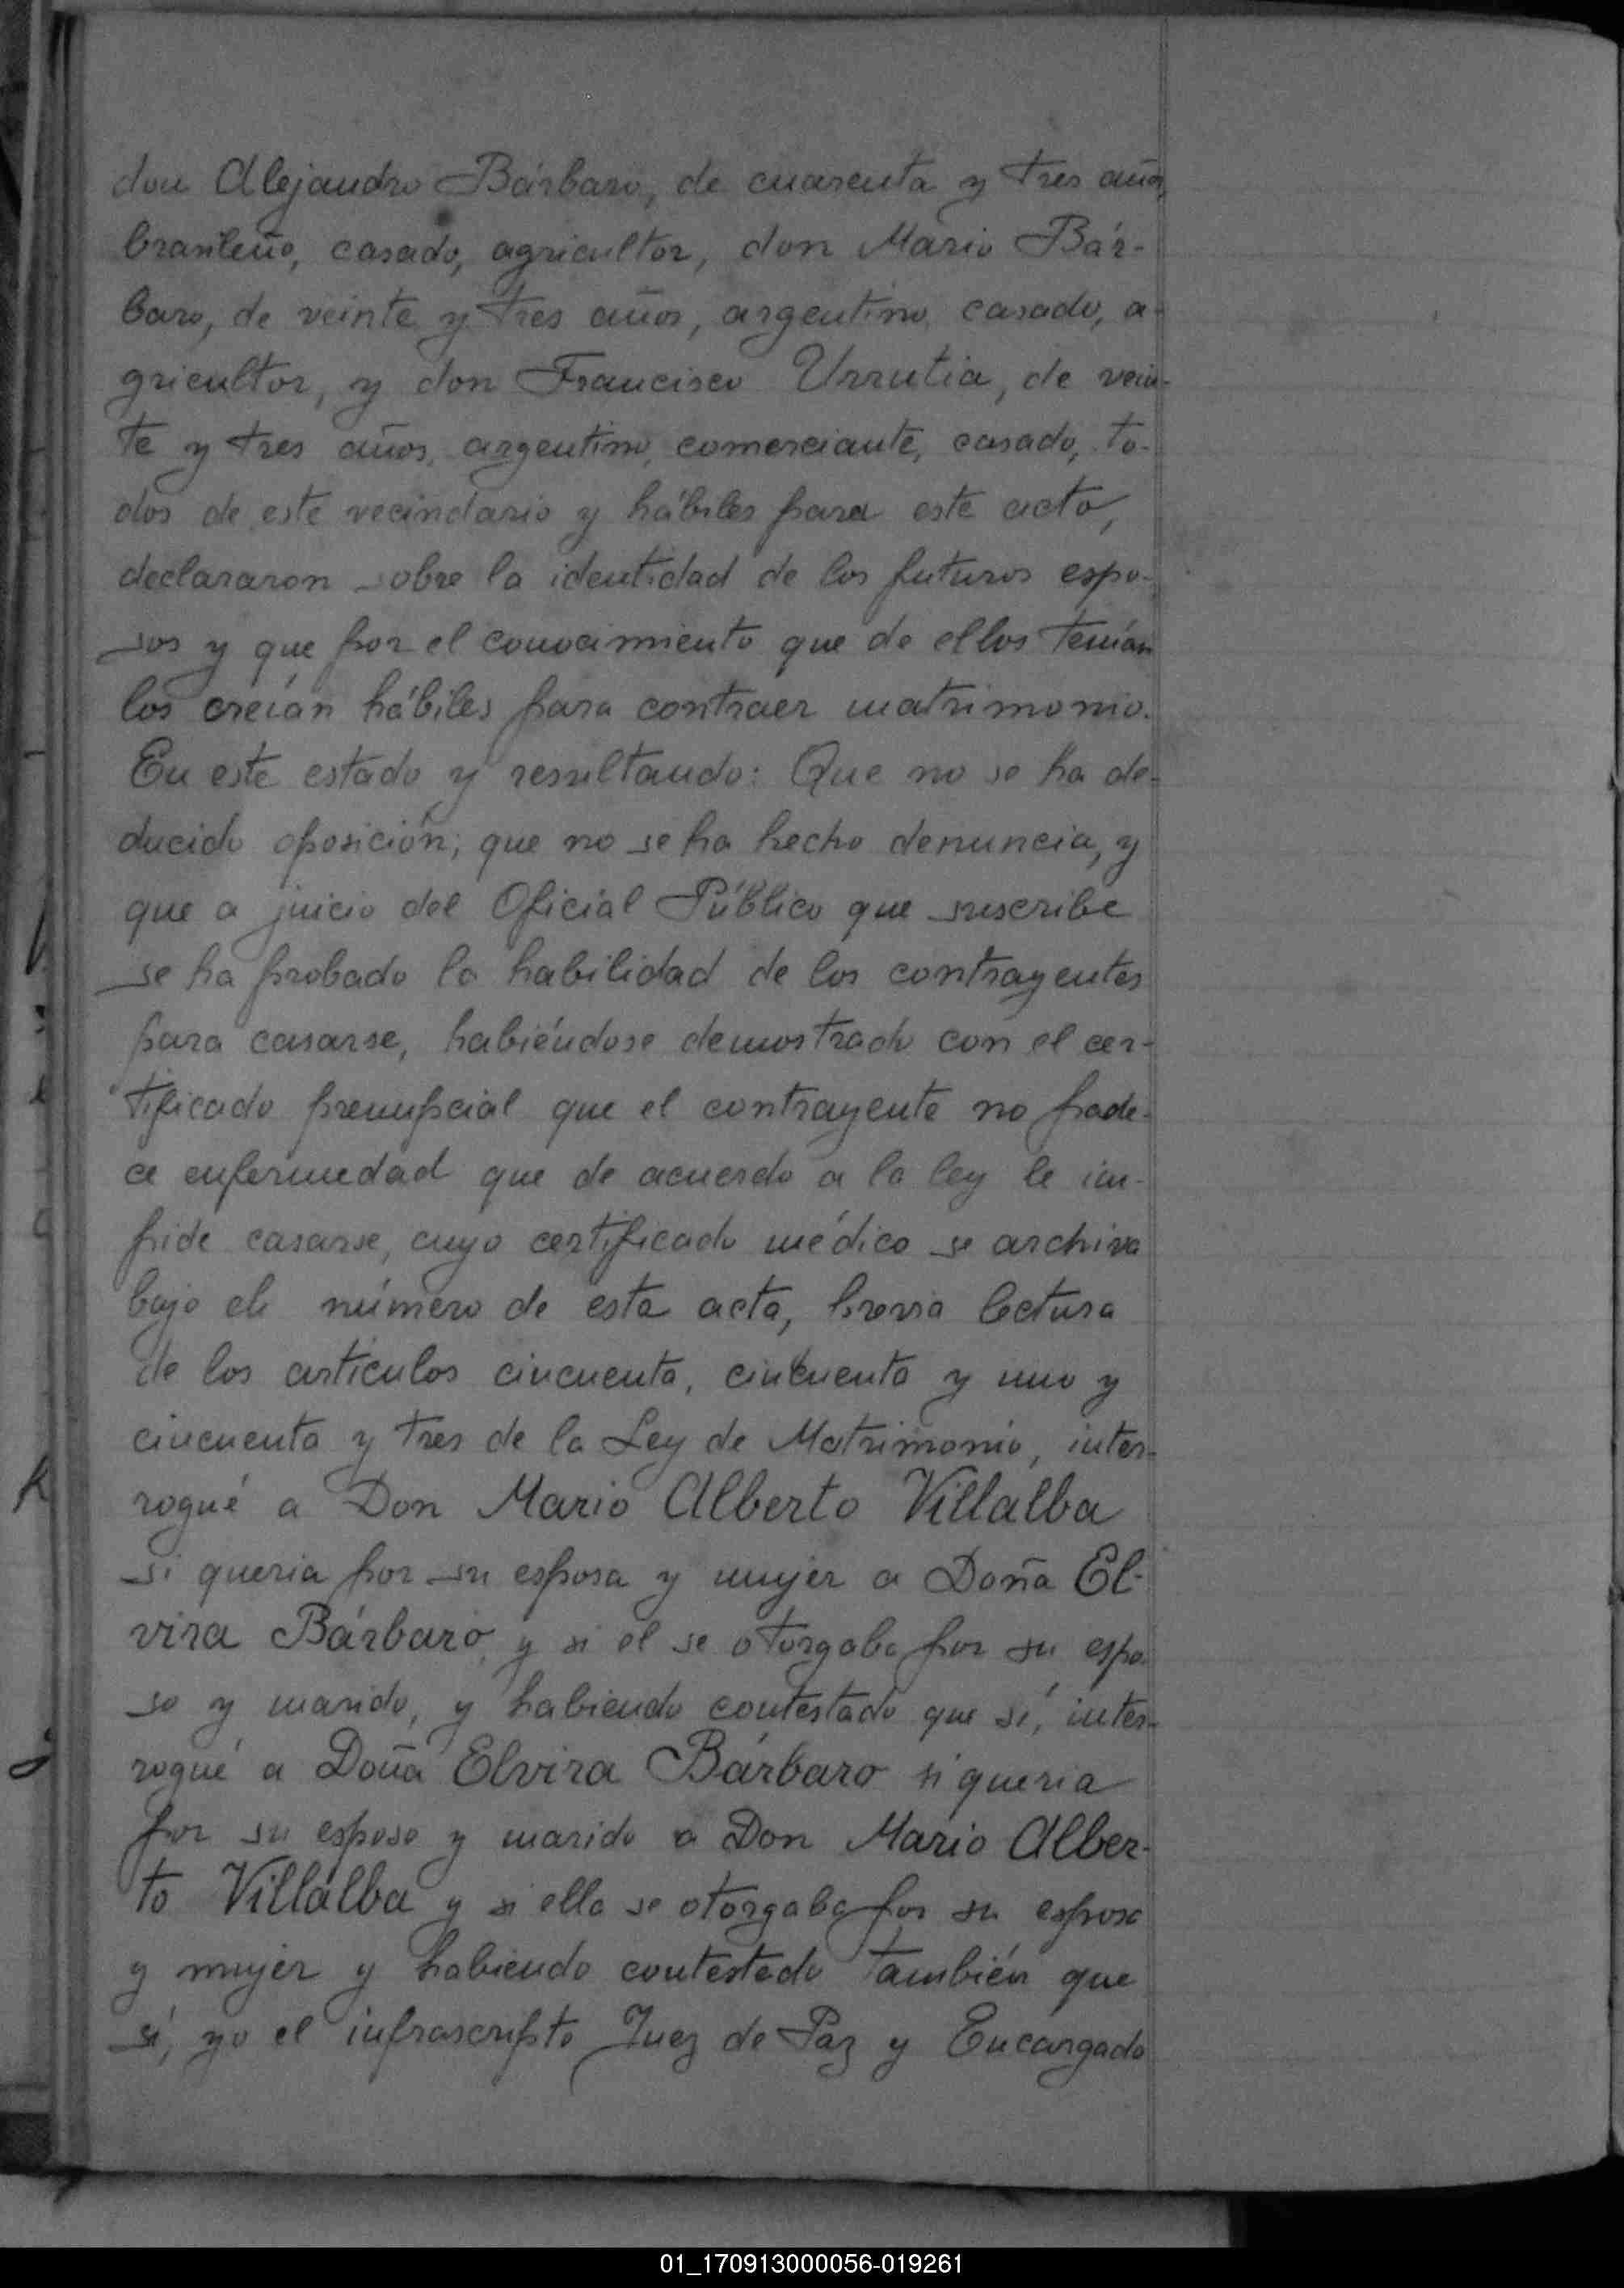 don Alejandro Bárbaro, de cuarenta y tres años,
brasileño, casado, agricultor, don Mario Bár-
baro, de veinte y tres años, argentino, casado, a-
gricultor, y don Francisco Urrutia, de vein-
te y tres años, argentino, comerciante, casado, to-
dos de este vecindario y hábiles para este acto,
declararon sobre la identidad de los futuros espo-
sos y que por el conocimiento que de ellos tenían
los creían hábiles para contraer matrimonio.
En este estado y resultando: Que no se ha de-
ducido oposición; que no se ha hecho denuncia, y
que a juicio del Oficial Público que suscribe
se ha probado la habilidad de los contrayentes
para casarse, habiéndose demostrado con el cer-
tificado prenupcial que el contrayente no pade-
ce enfermedad que de acuerdo a la ley le im-
pide casarse, cuyo certificado médico se archiva
bajo el número de esta acta, previa lectura
de los artículos cincuenta, cincuenta y uno y
cincuenta y tres de la Ley de Matrimonio, inter-
rogué a Don Mario Alberto Villalba
si queria por su esposa y mujer a Doña El-
vira Bárbaro, y si el se otorgaba por su espo-
so y marido, y habiendo contestado que sí, inter-
rogué a Doña Elvira Bárbaro si queria
por su esposo y marido a Don Mario Alber-
to Villalba y si ella se otorgaba por su esposa
y mujer y habiendo contestado también que
sí, yo el infrascripto Juez de Paz y Encargado
01_170913000056-019261